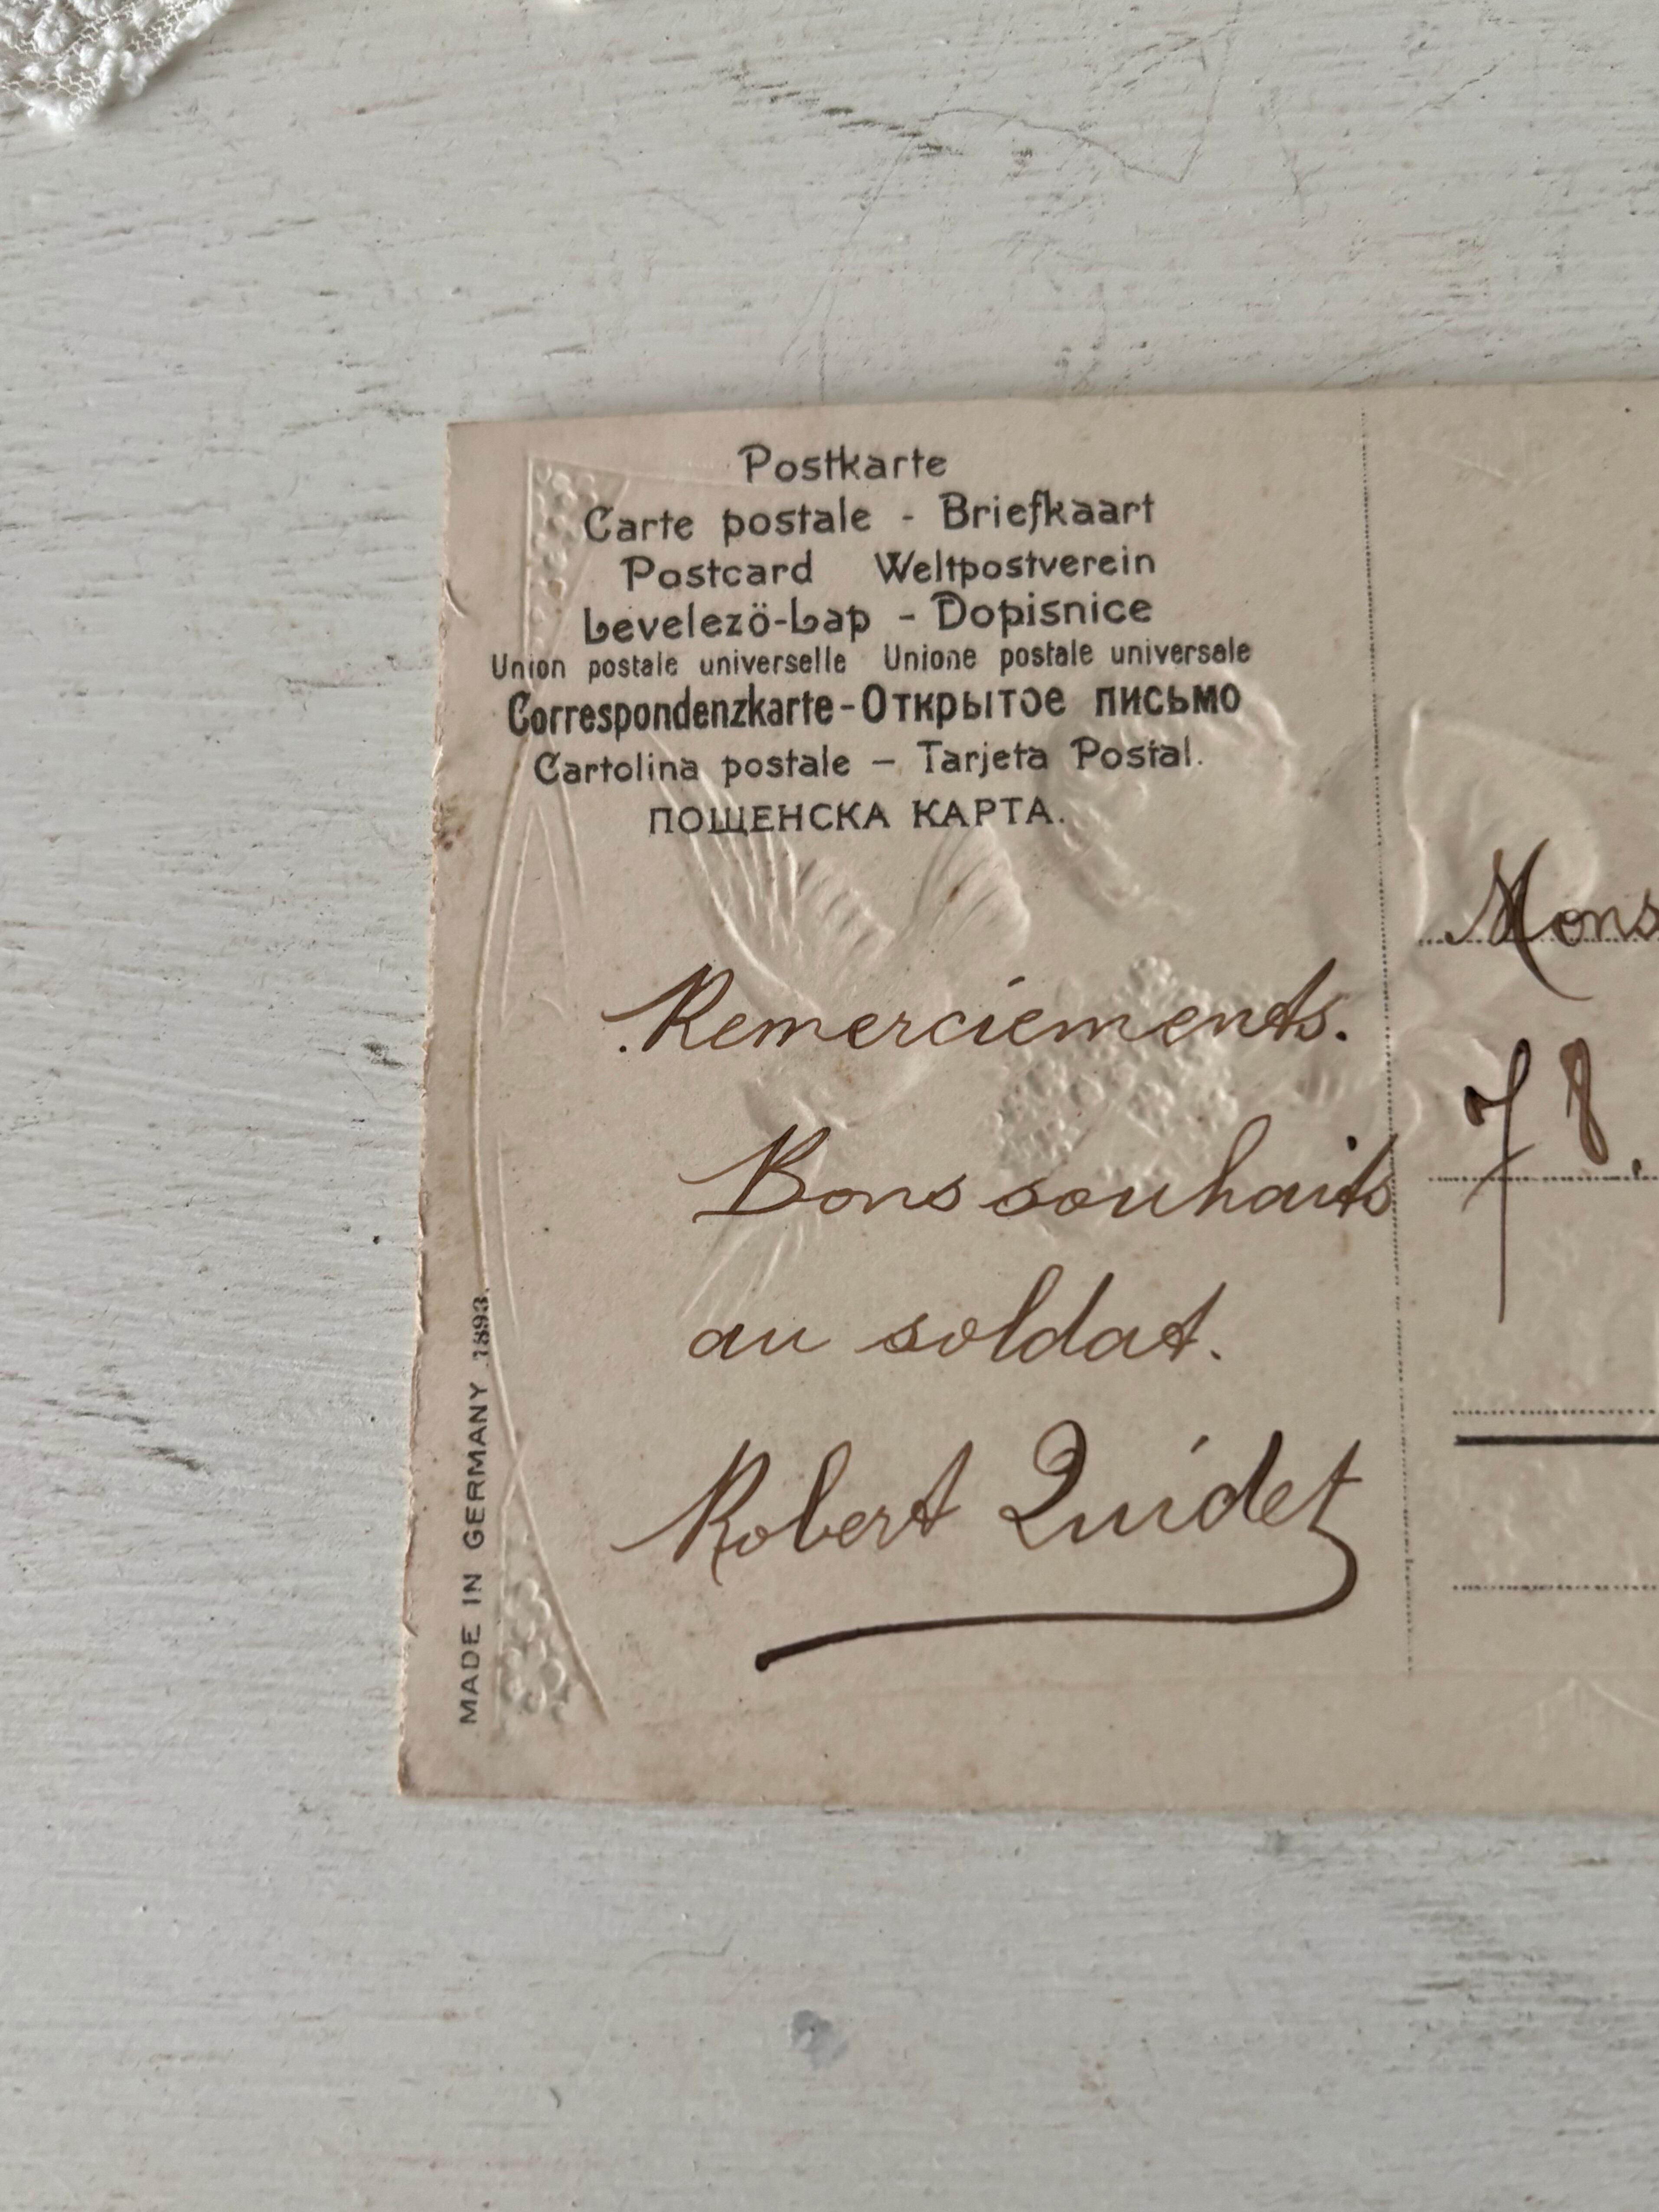 Postkarte
Carte postale - Briefkaart
Postcard Weltpostverein
Levelezö-Lap - Dopisnice
Union postale universelle Unione postale universale
Correspondenzkarte - Открытое письмо
Cartolina postale – Tarjeta Postal.
ПОЩЕНСКА КАРТА.
Remerciements.
Bons souhaits
au soldat.
Robert Quidet
Mons
78.
MADE IN GERMANY 1893.